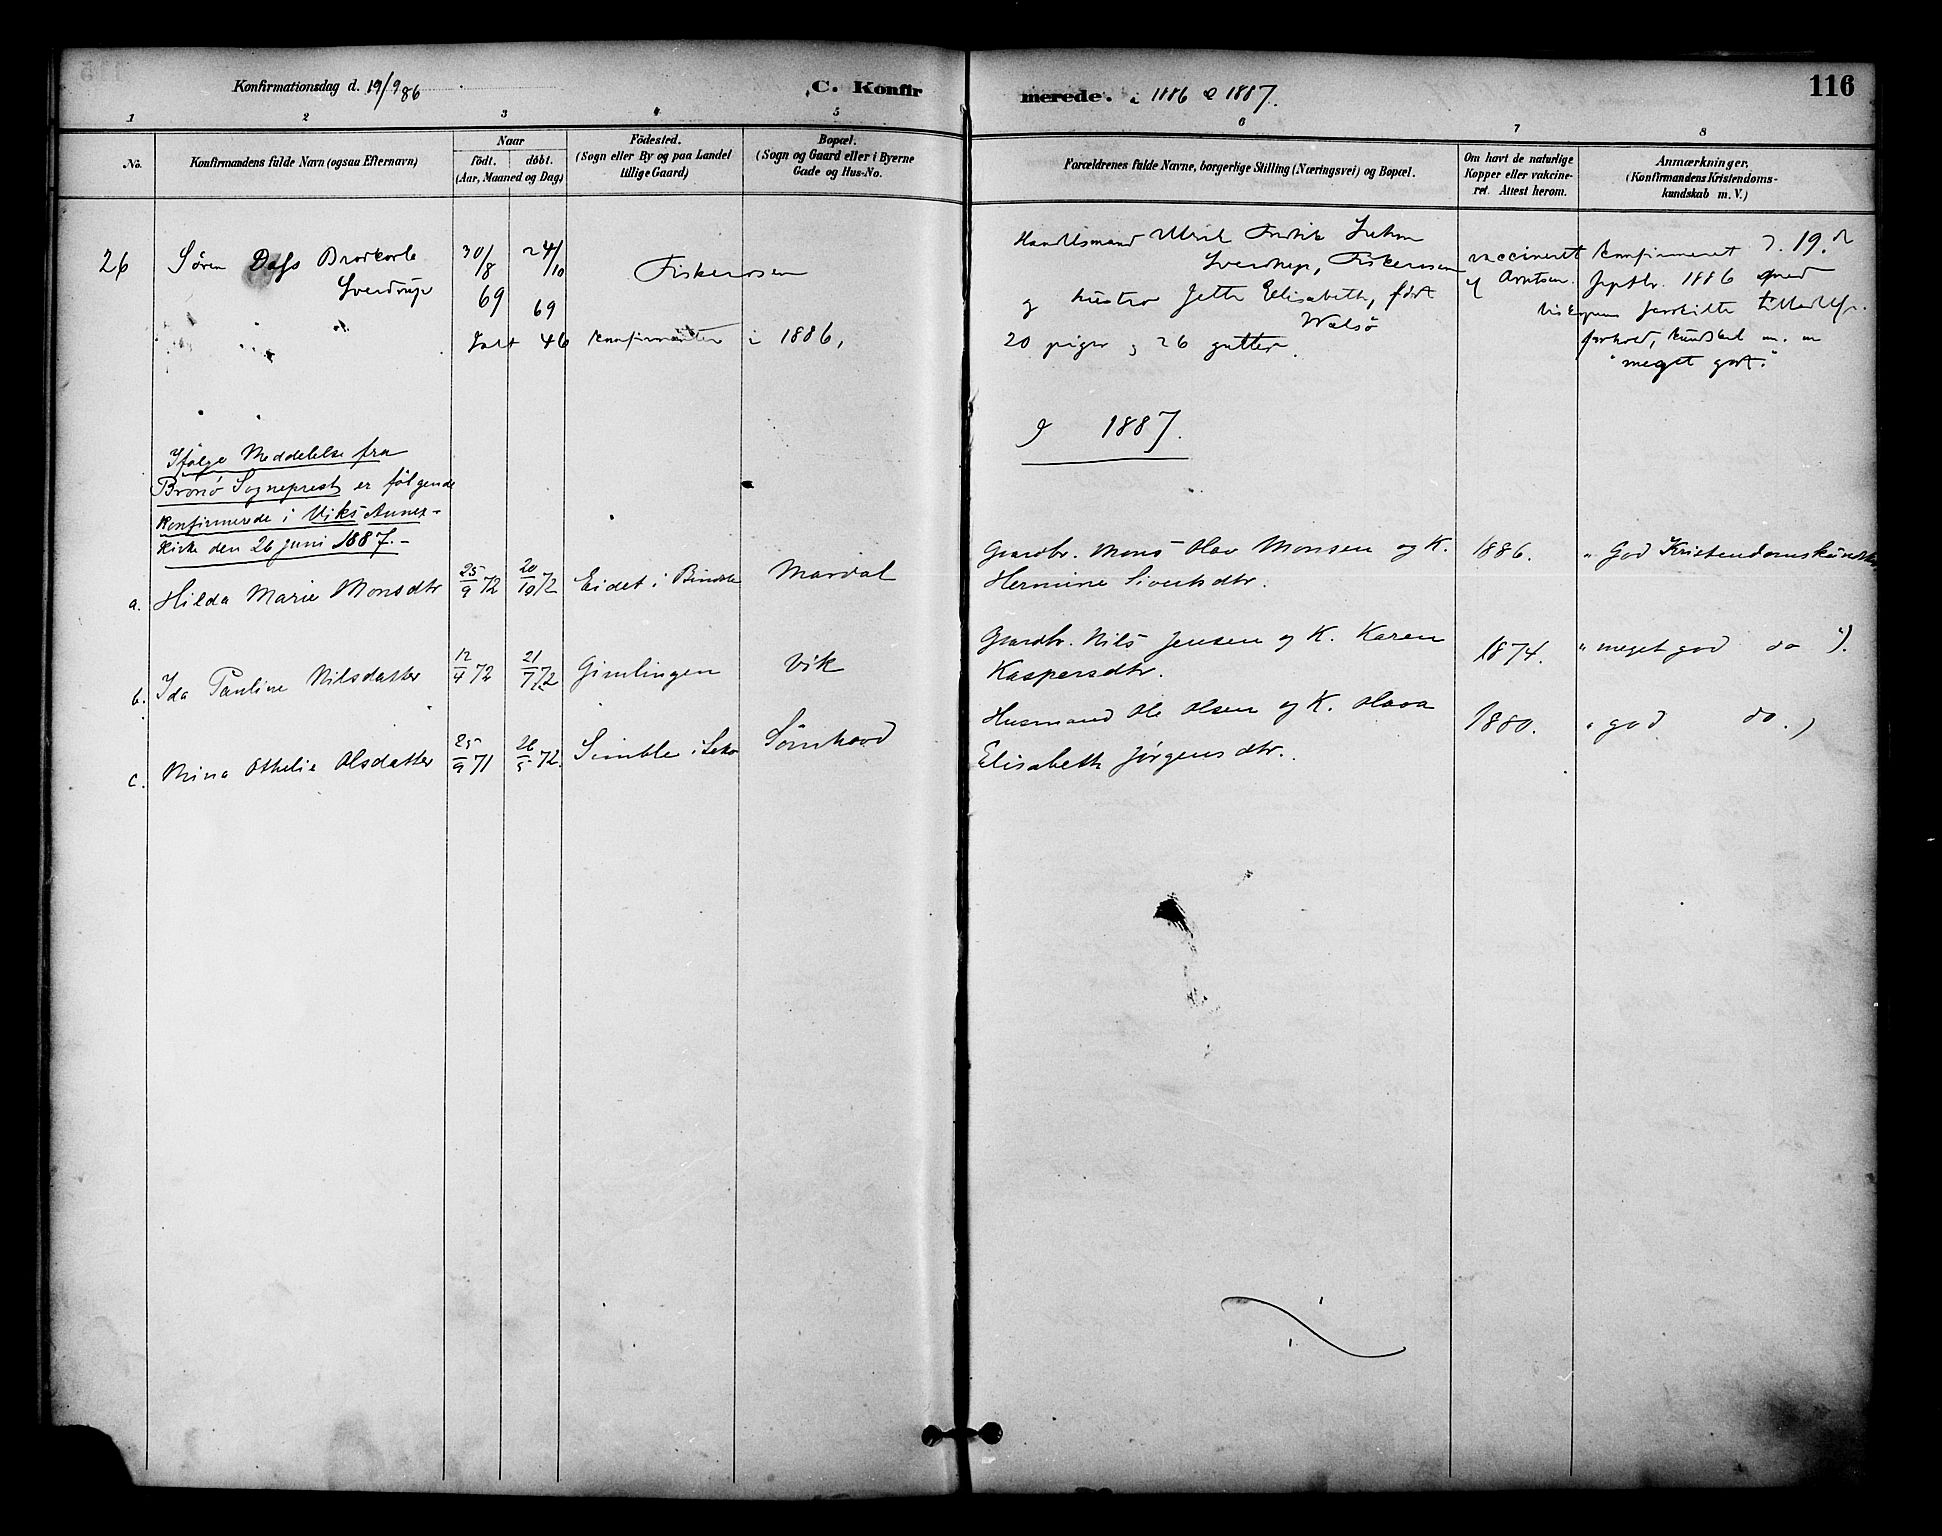 Konfirmationsdag d. 19/9 86
C. Konfirmerede. i 1886 & 1887.
116
1 2 3 4 5 6 7 8
No.
Konfirmandens fulde Navn (ogsaa Efternavn)
Naar
födt. döbt.
(Aar, Maaned og Dag)
Födested.
(Sogn eller By og paa Landet
tillige Gaard)
Bopæl.
(Sogn og Gaard eller i Byerne
Gade og Hus-No.
Forældrenes fulde Navne, borgerlige Stilling (Næringsvei) og Bopæl.
Om havt de naturlige
Kopper eller vakcine-
ret. Attest herom.
Anmærkninger,
(Konfirmandens Kristendoms-
kundskab m. V.)
26 Sören Dass Brodkorb
Sverdrup
30/8 69
24/10 69
Fiskerosen
Handelsmand Ulrik Fredrik
Sverdrup, Fiskerosen
og hustro Jette Elisabeth, født
Walsö
vaccineret
af Arntsen
Konfirmeret d. 19. de
Septbr. 1886 med
forhold, kundskab m. m
"meget godt."
Ialt 46 konfirmanter i 1886,
20 piger og 26 gutter.
I 1887.
Ifølge Meddelelse fra
Brønø Sogneprest er følgende
konfirmerede i Viks Annex-
kirke den 26 juni 1887. -
a. Hilda Marie Monsdtr 25/9 72 20/10 72 Eidet i Bindal Mardal
Gaardbr. Mons Olav Monsen og K.
Hermine Sivertsdtr.
1886. " God Kristendomskundsk
b. Ida Pauline Nilsdatter 12/4 72 21/7 72 Gimlingen Vik
Gaardbr. Nils Jensen og K. Karen
Kaspersdtr.
1874. " meget god do ).
c. Mina Othelie Olsdatter 25/9 71 26/5 72. Simble i Leka Sömhovd
Husmand Ole Olsen og K. Olava
Elisabeth Jørgensdtr.
1880. " god do. )